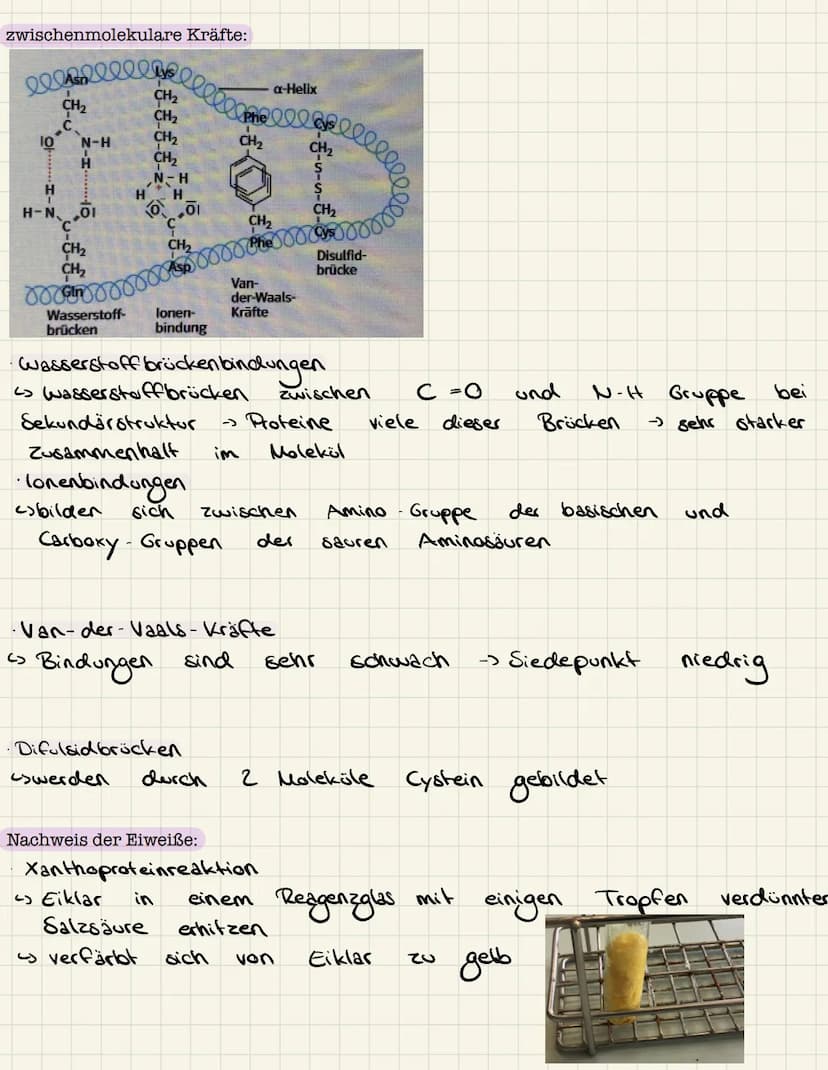 zwischenmolekulare Kräfte:
Asn
Lys
α-Helix
CH₂
CH₂
Phe
Cys
C
CH₂
CH₂
CH₂
IO
N-H
CH₂
CH₂
H
CH₂
S
N-H
S
H
H
H
H-N
OI
O
OI
CH₂
CH₂
C
C
Cys
CH₂
CH₂
Phe
CH₂
Asp
Disulfid-
brücke
Gln
Van-
der-Waals-
Kräfte
Wasserstoff-
brücken
Ionen-
bindung
· Wasserstoffbrückenbindungen
↳ Wasserstoffbrücken zwischen C=O und N-H Gruppe bei
Sekundärstruktur -> Proteine viele dieser Brücken -> sehr starker
Zusammenhalt im Molekül
· Ionenbindungen
↳ bilden sich zwischen Amino-Gruppe der basischen und
Carboxy-Gruppen der sauren Aminosäuren
· Van-der-Vaals-Kräfte
↳ Bindungen sind sehr schwach -> Siedepunkt niedrig
· Difulsidbrücken
↳ werden durch 2 Moleküle Cystein gebildet
Nachweis der Eiweiße:
· Xanthoproteinreaktion
↳ Eiklar in einem Reagenzglas mit einigen Tropfen verdünnter
Salzsäure erhitzen
↳ verfärbt sich von Eiklar zu gelb